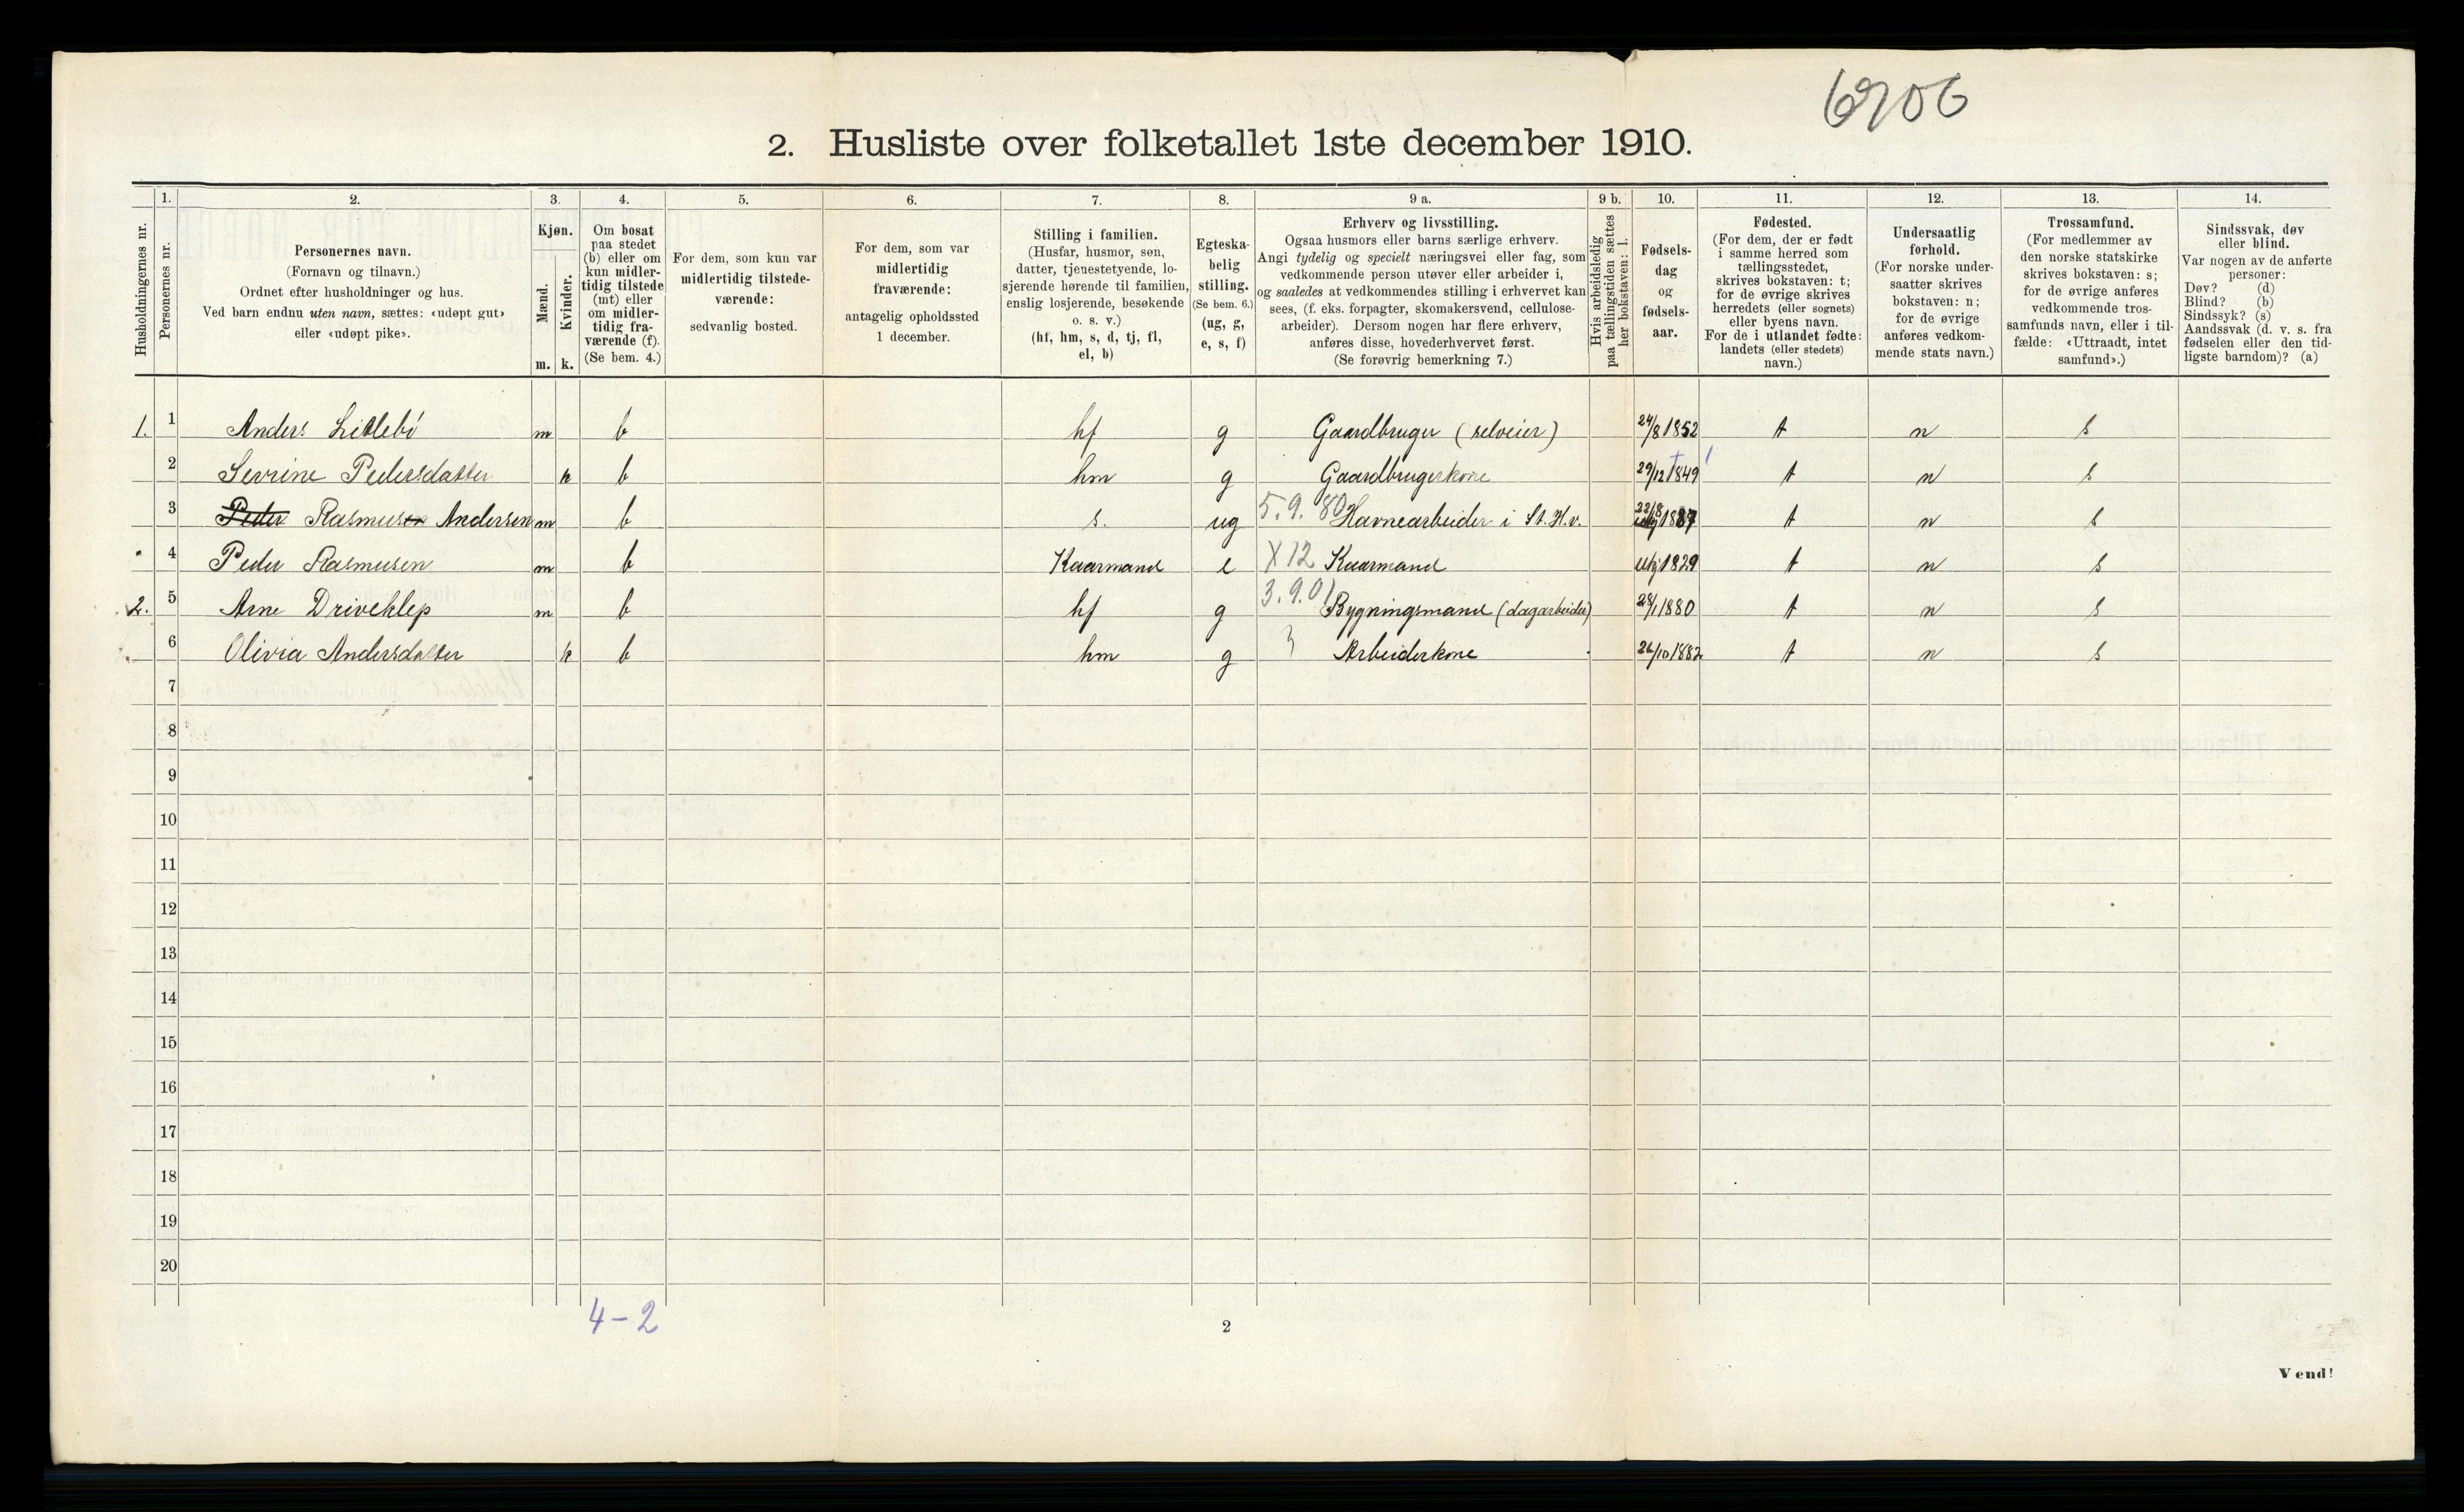 6906
2. Husliste over folketallet 1ste december 1910.
Husholdningernes nr.
1.
Personernes nr.
2.
Personernes navn.
(Fornavn og tilnavn.)
Ordnet efter husholdninger og hus.
Ved barn endnu uten navn, sættes: «udøpt gut»
eller «udøpt pike».
3.
Kjøn.
Mænd.
Kvinder.
m. k.
4.
Om bosat
paa stedet
(b) eller om
kun midler-
tidig tilstede
(mt) eller
om midler-
tidig fra-
værende (f).
(Se bem. 4.)
5.
For dem, som kun var
midlertidig tilstede-
værende:
sedvanlig bosted.
6.
For dem, som var
midlertidig
fraværende:
antagelig opholdssted
1 december.
7.
Stilling i familien.
(Husfar, husmor, søn,
datter, tjenestetyende, lo-
sjerende hørende til familien,
enslig losjerende, besøkende
o. s. v.)
(hf, hm, s, d, tj, fl,
el, b)
8.
Egteska-
belig
stilling.
(Se bem. 6.)
(ug, g,
e, s, f)
9 a.
Erhverv og livsstilling.
Ogsaa husmors eller barns særlige erhverv.
Angi tydelig og specielt næringsvei eller fag, som
vedkommende person utøver eller arbeider i,
og saaledes at vedkommendes stilling i erhvervet kan
sees, (f. eks. forpagter, skomakersvend, cellulose-
arbeider). Dersom nogen har flere erhverv,
anføres disse, hovederhvervet først.
(Se forøvrig bemerkning 7.)
9 b.
Hvis arbeidsledig
paa tællingstiden sættes
her bokstaven: l.
10.
Fødsels-
dag
og
fødsels-
aar.
11.
Fødested.
(For dem, der er født
i samme herred som
tællingsstedet,
skrives bokstaven: t;
for de øvrige skrives
herredets (eller sognets)
eller byens navn.
For de i utlandet fødte:
landets (eller stedets)
navn.)
12.
Undersaatlig
forhold.
(For norske under-
saatter skrives
bokstaven: n;
for de øvrige
anføres vedkom-
mende stats navn.)
13.
Trossamfund.
(For medlemmer av
den norske statskirke
skrives bokstaven: s;
for de øvrige anføres
vedkommende tros-
samfunds navn, eller i til-
fælde: «Uttraadt, intet
samfund».)
14.
Sindssvak, døv
eller blind.
Var nogen av de anførte
personer:
Døv? (d)
Blind? (b)
Sindssyk? (s)
Aandssvak (d. v. s. fra
fødselen eller den tid-
ligste barndom)? (a)
1. 1 Anders Litlebø m b hf g Gaardbruger (selveier) 24/8 1852 t n s
2 Sevrine Pedersdatter k b hm g Gaardbrugerkone 29/12 1849 t n s
3 Peder Rasmusen Andersen m b s. ug 5.9.80 Havnearbeider i St. H.v. 22/8 1887 t n s
4 Peder Rasmusen m b Kaarmand e X12 Kaarmand 1829 t n s
2. 5 Arne Driveklep m b hf g 3.9.01 Bygningsmand (dagarbeider) 28/1 1880 t n s
6 Olivia Andersdatter k b hm g 3 Arbeiderkone 26/10 1882 t n s
7
8
9
10
11
12
13
14
15
16
17
18
19
20
4-2
2
Vend!